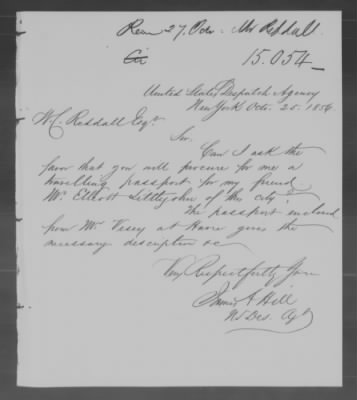 Recd 27. Octr. Mr Reddall.
15.054
United States Despatch Agency
New York Octr. 25. 1856
W. C. Reddall Esqr.
Sir.
Can I ask the
favor that you will procure for me a
travelling passport for my friend
Mr. Elliott Littlejohn of this city.
The passport enclosed
from Mr Vesey at Havre gives the
necessary description &c
Very Respectfully Yours
Hill
U S Des. Agt